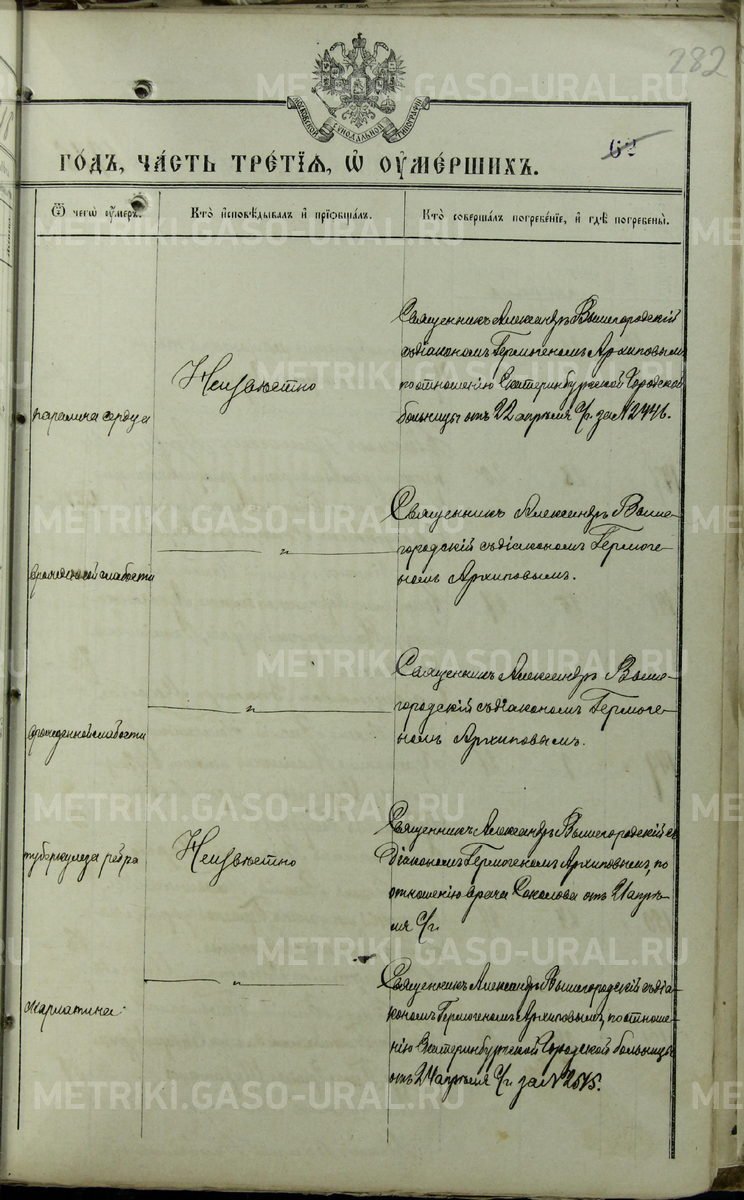 282
МОСКОВСКОЙ СѴНОДАЛЬНОЙ ТИПОГРАФІИ
62
ГОДЪ, ЧАСТЬ ТРЕТІЯ, Ѡ ОУМЕРШИХЪ.
Ѿ чегѡ оумеръ.
Кто исповѣдывалъ и пріѡбщалъ.
Кто совершалъ погребеніе, и гдѣ погребены.
паралича сердца
Неизвѣстно
Священникъ Александръ Вышегородскій
съ діакономъ Гермогеномъ Архиповымъ
по отношенію Екатеринбургской Городской
больницы отъ 22 апрѣля с/г. за № 2446.
врожденной слабости
— „ —
Священникъ Александръ Выше-
городскій съ діакономъ Гермоге-
номъ Архиповымъ.
врожденной слабости
— „ —
Священникъ Александръ Выше-
городскій съ діакономъ Гермоге-
номъ Архиповымъ.
туберкулеза ребра
Неизвѣстно
Священникъ Александръ Вышегородскій съ
діакономъ Гермогеномъ Архиповымъ, по
отношенію врача Соколова отъ 21 апрѣ-
ля с/г.
скарлатина
— „ —
Священникъ Александръ Вышегородскій съ діа-
кономъ Гермогеномъ Архиповымъ, по отноше-
нію Екатеринбургской Городской больницы
отъ 24 апрѣля с/г. за №
METRIKI.GASO-URAL.RU